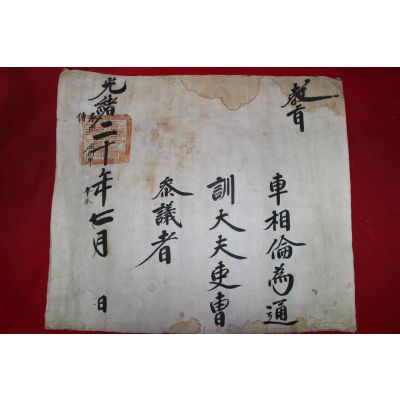 教旨
車相倫為通
訓大夫吏曹
叅議者
光緒二十年七月 日